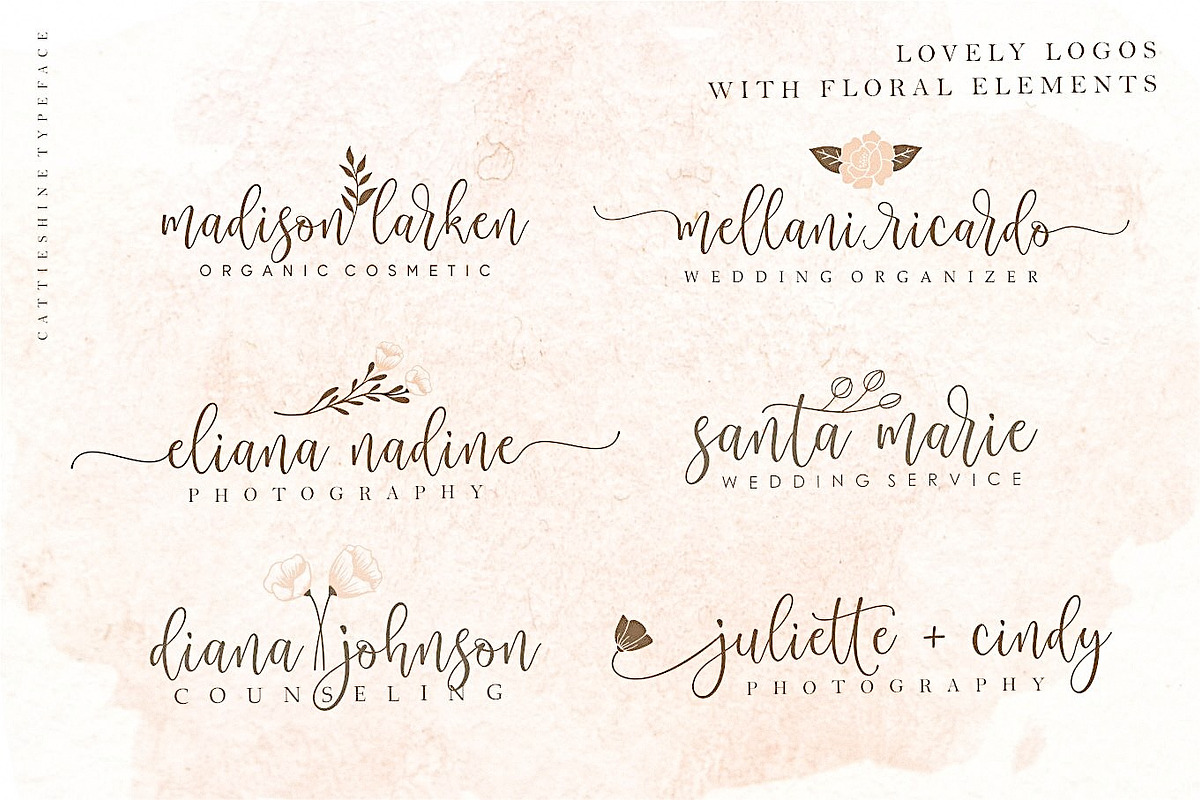 CATTIESHINE TYPEFACE
LOVELY LOGOS
WITH FLORAL ELEMENTS
madison larken
ORGANIC COSMETIC
mellani ricardo
WEDDING ORGANIZER
eliana nadine
PHOTOGRAPHY
santa marie
WEDDING SERVICE
diana johnson
COUNSELING
juliette + cindy
PHOTOGRAPHY